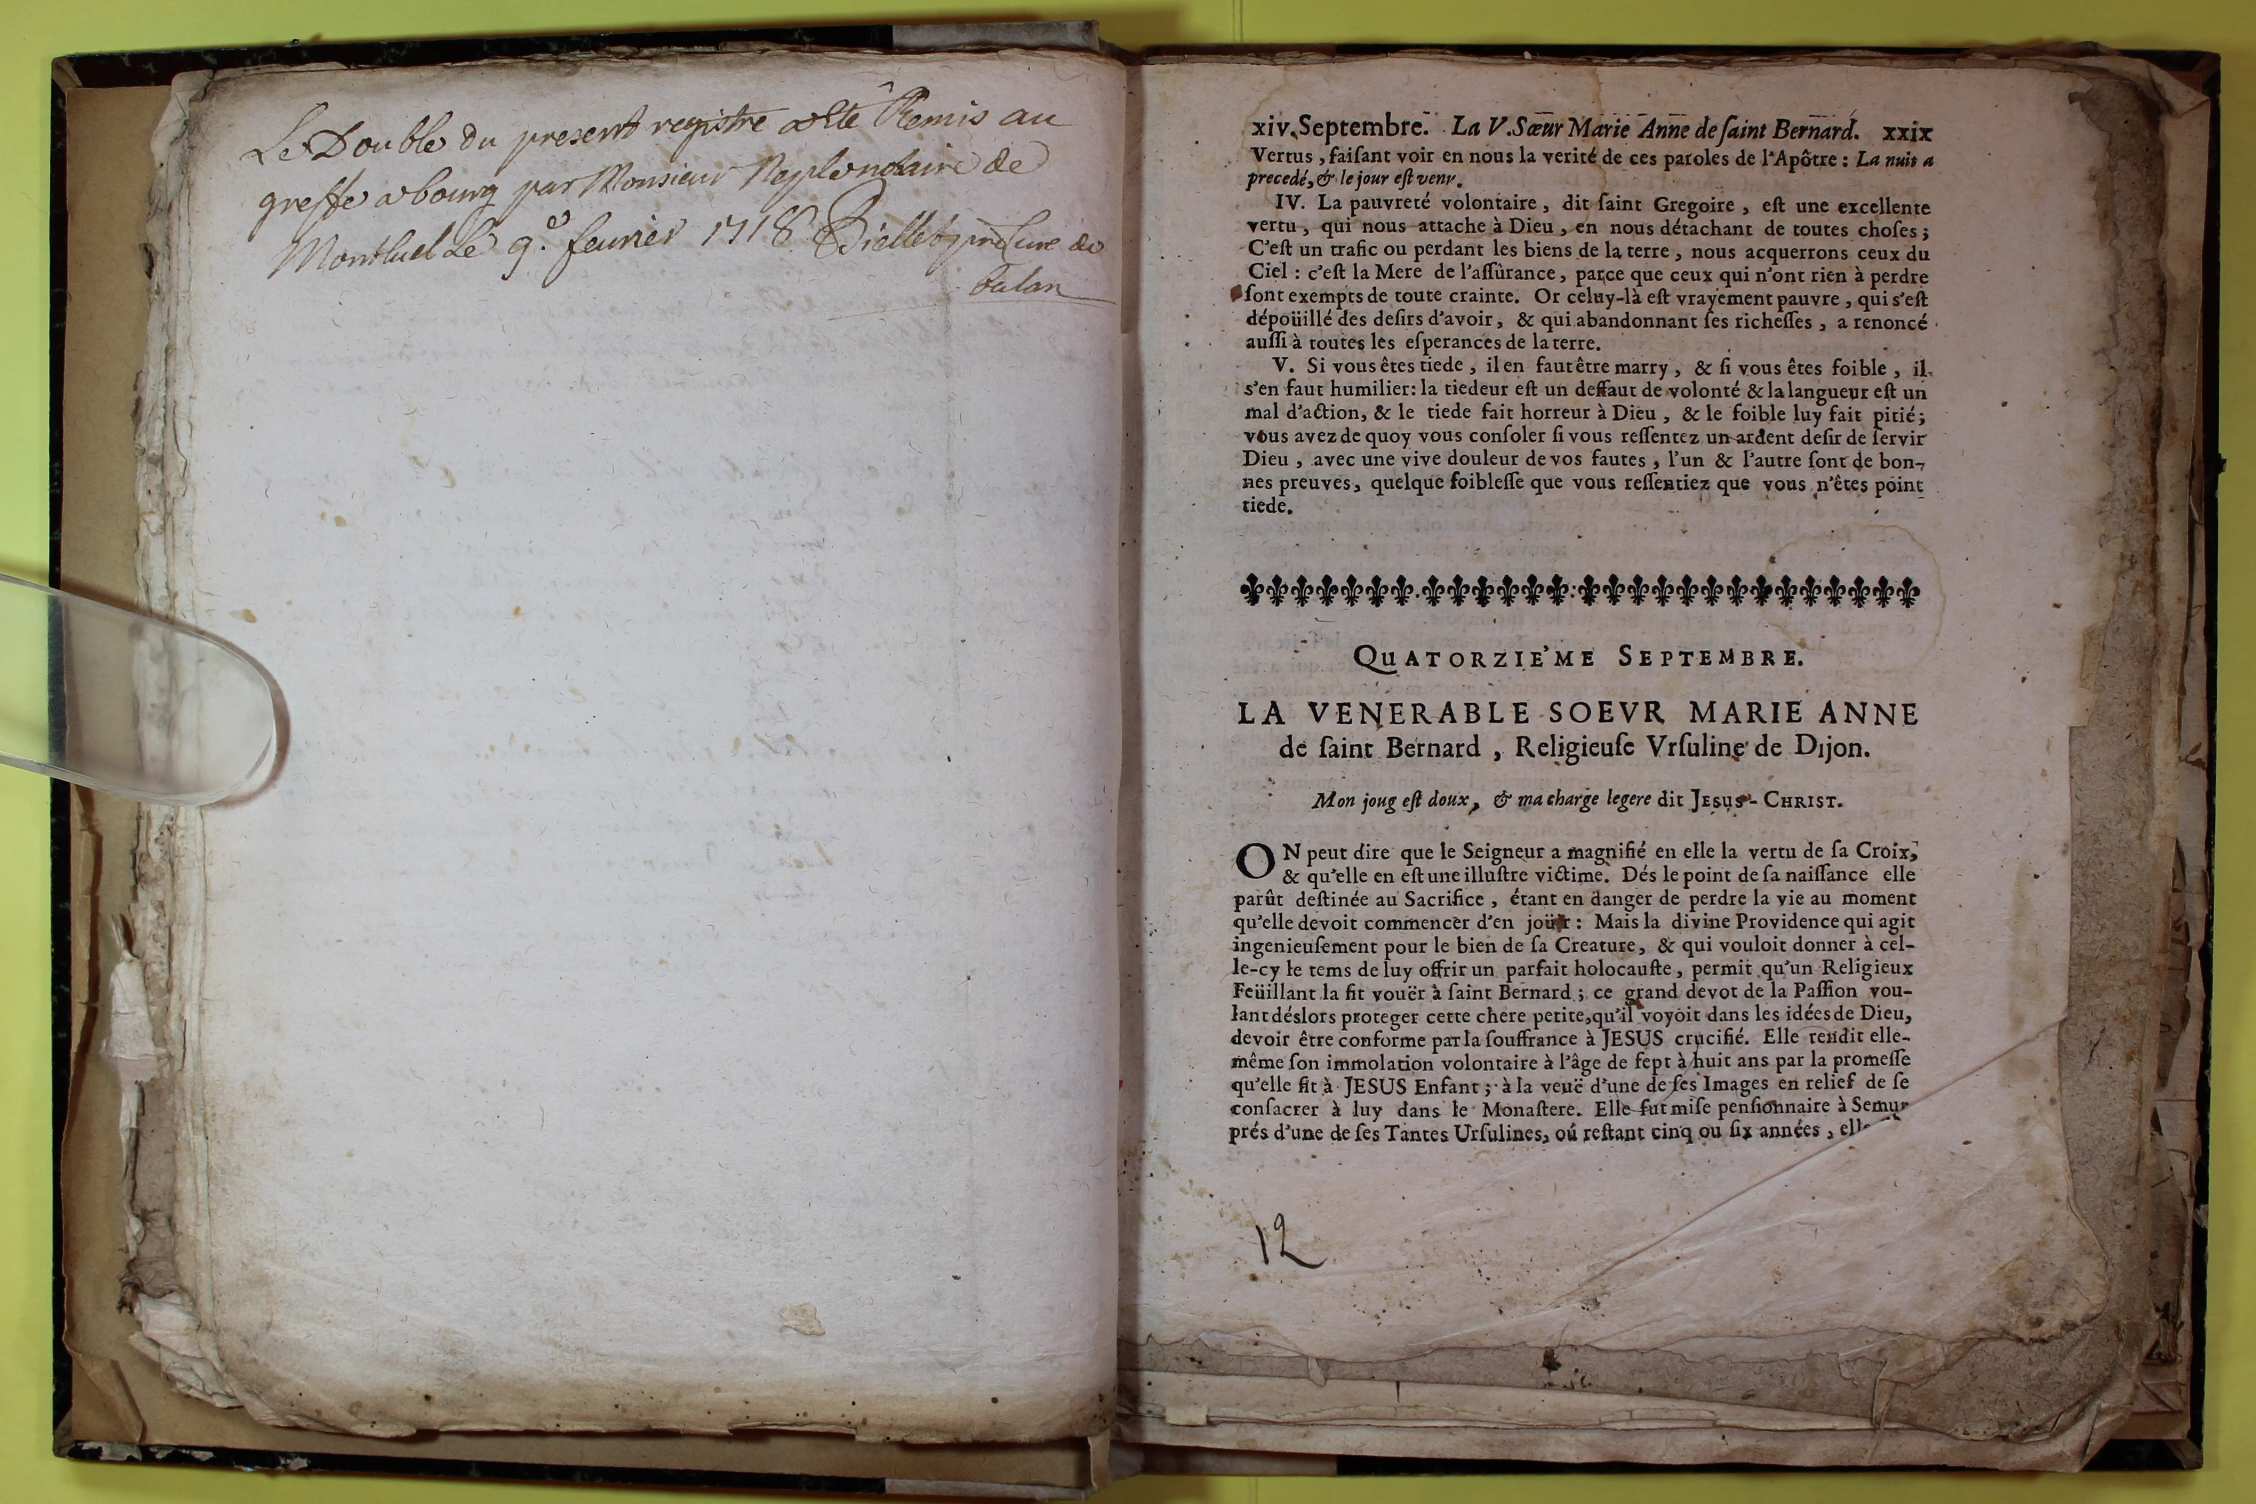 Le Double du present registre a été Remis au
greffe a bourg par Monsieur de
Montluel Le 9.e fevrier 1718 cure de
balan
xiv. Septembre. La V. Sœur Marie Anne de ſaint Bernard. xxix
Vertus, faiſant voir en nous la verité de ces paroles de l'Apôtre : La nuit a
precedé, & le jour eſt venu.
IV. La pauvreté volontaire, dit ſaint Gregoire, eſt une excellente
vertu, qui nous attache à Dieu, en nous détachant de toutes choſes ;
C'eſt un trafic ou perdant les biens de la terre, nous acquerrons ceux du
Ciel : c'eſt la Mere de l'aſſûrance, parce que ceux qui n'ont rien à perdre
ſont exempts de toute crainte. Or celuy-là eſt vrayement pauvre, qui s'eſt
dépoüillé des deſirs d'avoir, & qui abandonnant ſes richeſſes, a renoncé
auſſi à toutes les eſperances de la terre.
V. Si vous êtes tiede, il en faut être marry, & ſi vous êtes foible, il
s'en faut humilier : la tiedeur eſt un deffaut de volonté & la langueur eſt un
mal d'action, & le tiede fait horreur à Dieu, & le foible luy fait pitié ;
vous avez de quoy vous conſoler ſi vous reſſentez un ardent deſir de ſervir
Dieu, avec une vive douleur de vos fautes, l'un & l'autre ſont de bon-
nes preuves, quelque foibleſſe que vous reſſentiez que vous n'êtes point
tiede.
QUATORZIE'ME SEPTEMBRE.
LA VENERABLE SOEVR MARIE ANNE
de ſaint Bernard, Religieuſe Vrſuline de Dijon.
Mon joug eſt doux, & ma charge legere dit JESUS-CHRIST.
ON peut dire que le Seigneur a magnifié en elle la vertu de ſa Croix,
& qu'elle en eſt une illuſtre victime. Dés le point de ſa naiſſance elle
parût deſtinée au Sacrifice, étant en danger de perdre la vie au moment
qu'elle devoit commencer d'en joüir : Mais la divine Providence qui agit
ingenieuſement pour le bien de ſa Creature, & qui vouloit donner à cel-
le-cy le tems de luy offrir un parfait holocauſte, permit qu'un Religieux
Feüillant la fit vouër à ſaint Bernard ; ce grand devot de la Paſſion vou-
lant déslors proteger cette chere petite, qu'il voyoit dans les idées de Dieu,
devoir être conforme par la ſouffrance à JESUS crucifié. Elle rendit elle-
même ſon immolation volontaire à l'âge de ſept à huit ans par la promeſſe
qu'elle fit à JESUS Enfant ; à la veuë d'une de ſes Images en relief de ſe
conſacrer à luy dans le Monaſtere. Elle fut miſe penſionnaire à Semur
prés d'une de ſes Tantes Urſulines, oú reſtant cinq ou ſix années, elle
12